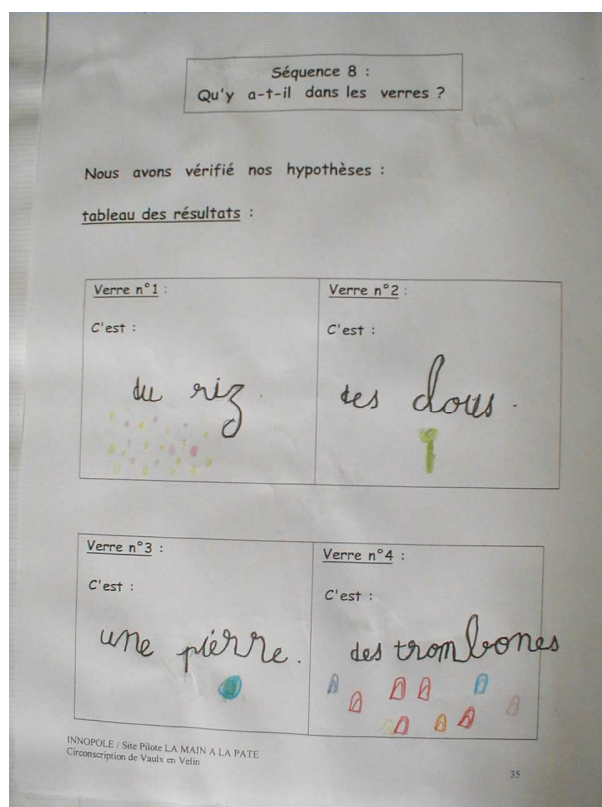 Séquence 8 :
Qu'y a-t-il dans les verres ?
Nous avons vérifié nos hypothèses :
tableau des résultats :
Verre n°1 :
C'est :
du riz.
Verre n°2 :
C'est :
des clous.
Verre n°3 :
C'est :
une pierre.
Verre n°4 :
C'est :
des trombones
INNOPOLE / Site Pilote LA MAIN A LA PATE
Circonscription de Vaulx en Velin
35